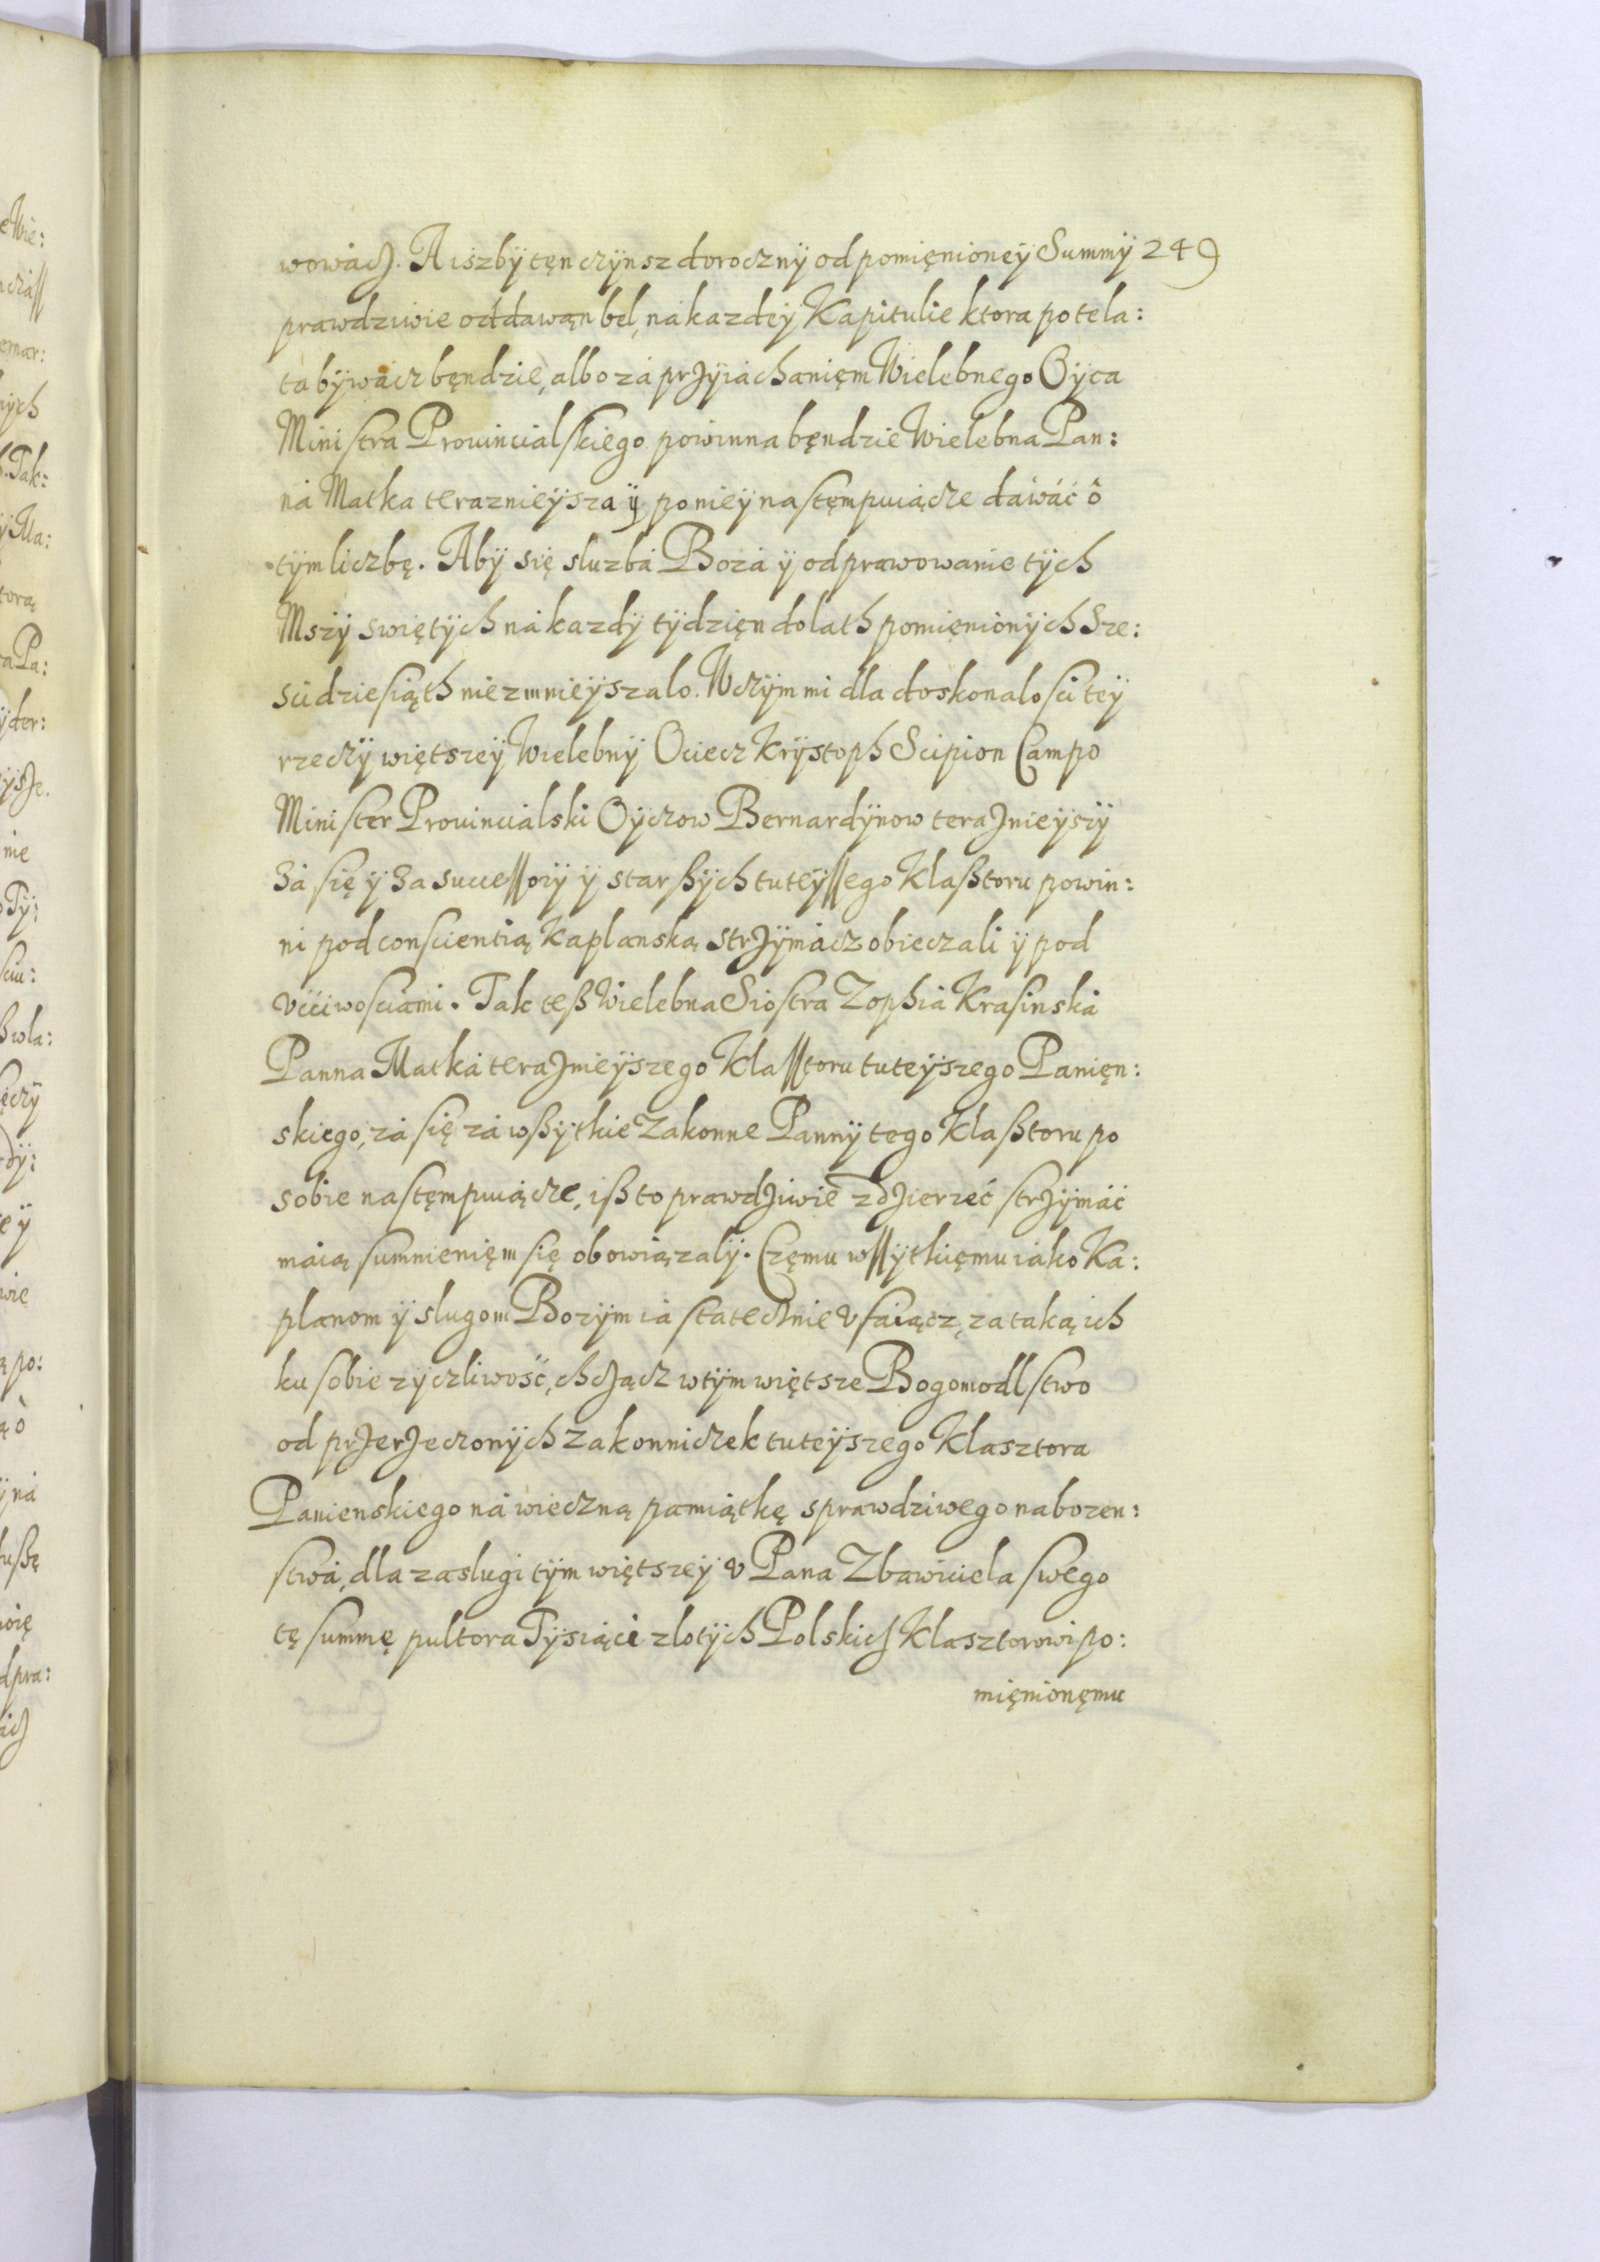 wowácz. A iszbÿ tęn czÿnsz doroczny od pomięnioneÿ Summÿ 249
prawdziwie oddawąn bęł, ná kazdeÿ Kapitulie ktora po tela:
ta bÿwácz bęndzie, albo zá przÿiáchanięm Wielebnego Oÿca
Ministra Prouincialskiego powinna bęndzie Wielebna Pan:
ná Matka teraznieÿsza ÿ po nieÿ nastęmpuiącze dáwáć ô
tÿm liczbę. Abÿ się sluzbá Bozá ÿ odprawowanie tÿch
Mszÿ swiętÿch ná kazdÿ tÿdzięn do lath pomięnionÿch Sze:
scidziesiąth nie zmnieÿszalo. W czÿm mi dla doskonalosci teÿ
rzeczÿ więtszeÿ Wielebnÿ Ociecz Krÿstoph Scipion Campo
Minister Prouincialski Oÿczow Bernardÿnow teraznieÿszÿ
Zá się ÿ Za successorÿ ÿ starßÿch tuteÿssego Klaßtoru powin:
ni pod conscientią Kaplanską strzÿmácz obieczali ÿ pod
vććiwosciami. Tak teß Wielebna Siostra Zophiá Krasinská
Panna Matká teraznieÿszego Klasstoru tuteÿszego Panięn:
skiego, zá się zá wßÿtkie Zakonne Pannÿ tego Klaßtoru po
sobie nastęmpuiącze, iß to prawdziwie zdzierzeć strzÿmáć
máią sumnienięm się obowiązalÿ. Częmu wssÿtkięmu iáko Ka:
planom ÿ slugom Bozÿm iá statecznie vfaiącz, za taką ich
ku sobie zÿczliwość, chcząćz w tÿm więtsze Bogomodlstwo
od przerzeczonÿch zakonniczek tuteÿszego Klasztora
Panienskiego ná wieczną pamiątkę sprawdziwego nabozen:
stwá, dla zaslugi tÿm więtszeÿ v Pana Zbawiciela swego
tę summę pultora Tÿsiąća zlotÿch Polskich Klasztorowi po:
mięnionęmu